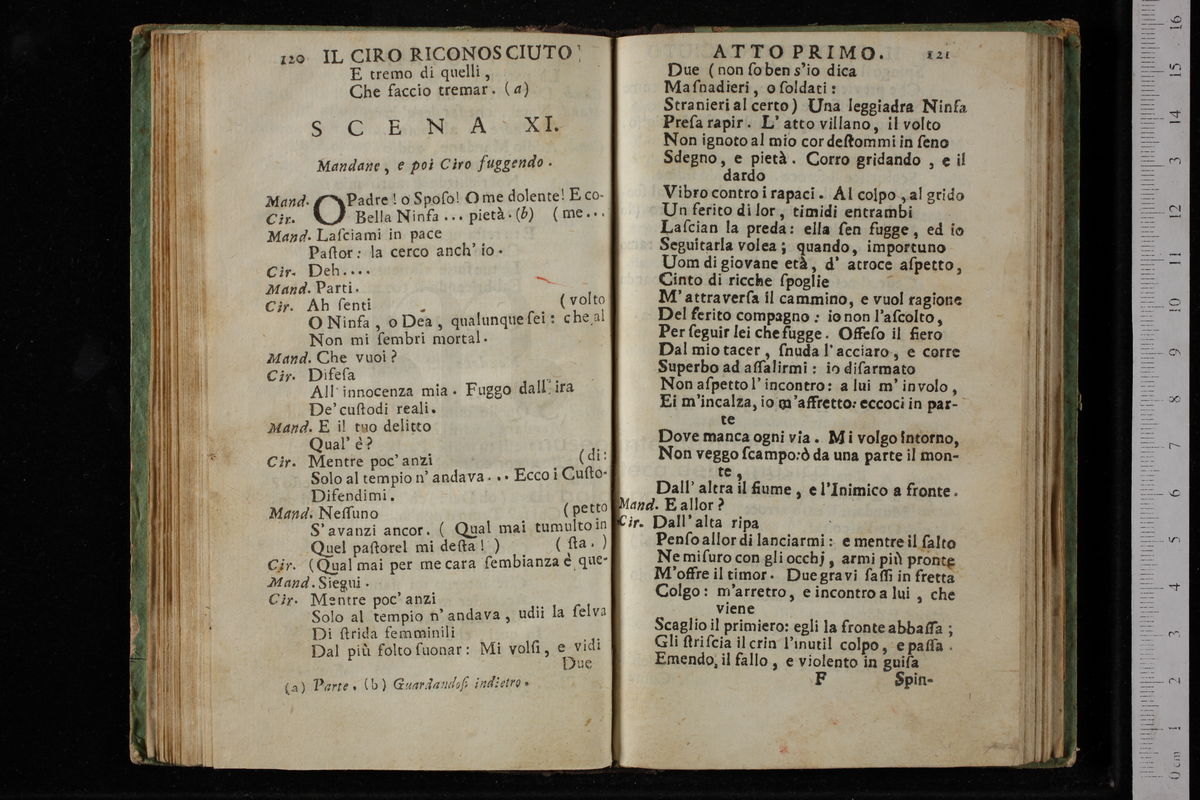 120 IL CIRO RICONOSCIUTO
E tremo di quelli,
Che faccio tremar. (a)
SCENA XI.
Mandane, e poi Ciro fuggendo.
Mand. O Padre! o Sposo! O me dolente! E co-
Cir. Bella Ninfa ... pietà. (b) (me...
Mand. Lasciami in pace
Pastor: la cerco anch' io.
Cir. Deh....
Mand. Parti.
Cir. Ah senti (volto
O Ninfa, o Dea, qualunque sei: che al
Non mi sembri mortal.
Mand. Che vuoi?
Cir. Difesa
All' innocenza mia. Fuggo dall' ira
De' custodi reali.
Mand. E il tuo delitto
Qual' è?
Cir. Mentre poc' anzi (di:
Solo al tempio n' andava... Ecco i Custo-
Difendimi.
Mand. Nessuno (petto
S' avanzi ancor. (Qual mai tumulto in
Quel pastorel mi desta!) (sta.)
Cir. (Qual mai per me cara sembianza è que-
Mand. Siegui.
Cir. Mentre poc' anzi
Solo al tempio n' andava, udii la selva
Di strida femminili
Dal più folto suonar: Mi volsi, e vidi
Due
(a) Parte. (b) Guardandosi indietro.
ATTO PRIMO. 121
Due (non so ben s'io dica
Masnadieri, o soldati:
Stranieri al certo) Una leggiadra Ninfa
Presa rapir. L' atto villano, il volto
Non ignoto al mio cor destommi in seno
Sdegno, e pietà. Corro gridando, e il
dardo
Vibro contro i rapaci. Al colpo, al grido
Un ferito di lor, timidi entrambi
Lascian la preda: ella sen fugge, ed io
Seguitarla volea; quando, importuno
Uom di giovane età, d' atroce aspetto,
Cinto di ricche spoglie
M' attraversa il cammino, e vuol ragione
Del ferito compagno: io non l'ascolto,
Per seguir lei che fugge. Offeso il fiero
Dal mio tacer, snuda l' acciaro, e corre
Superbo ad assalirmi: io disarmato
Non aspetto l' incontro: a lui m' involo,
Ei m'incalza, io m'affretto: eccoci in par-
te
Dove manca ogni via. Mi volgo intorno,
Non veggo scampo: ò da una parte il mon-
te,
Dall' altra il fiume, e l'Inimico a fronte.
Mand. E allor?
Cir. Dall' alta ripa
Penso allor di lanciarmi: e mentre il salto
Ne misuro con gli occhj, armi più pronte
M'offre il timor. Due gravi sassi in fretta
Colgo: m'arretro, e incontro a lui, che
viene
Scaglio il primiero: egli la fronte abbassa;
Gli striscia il crin l'inutil colpo, e passa.
Emendo, il fallo, e violento in guisa
F Spin-